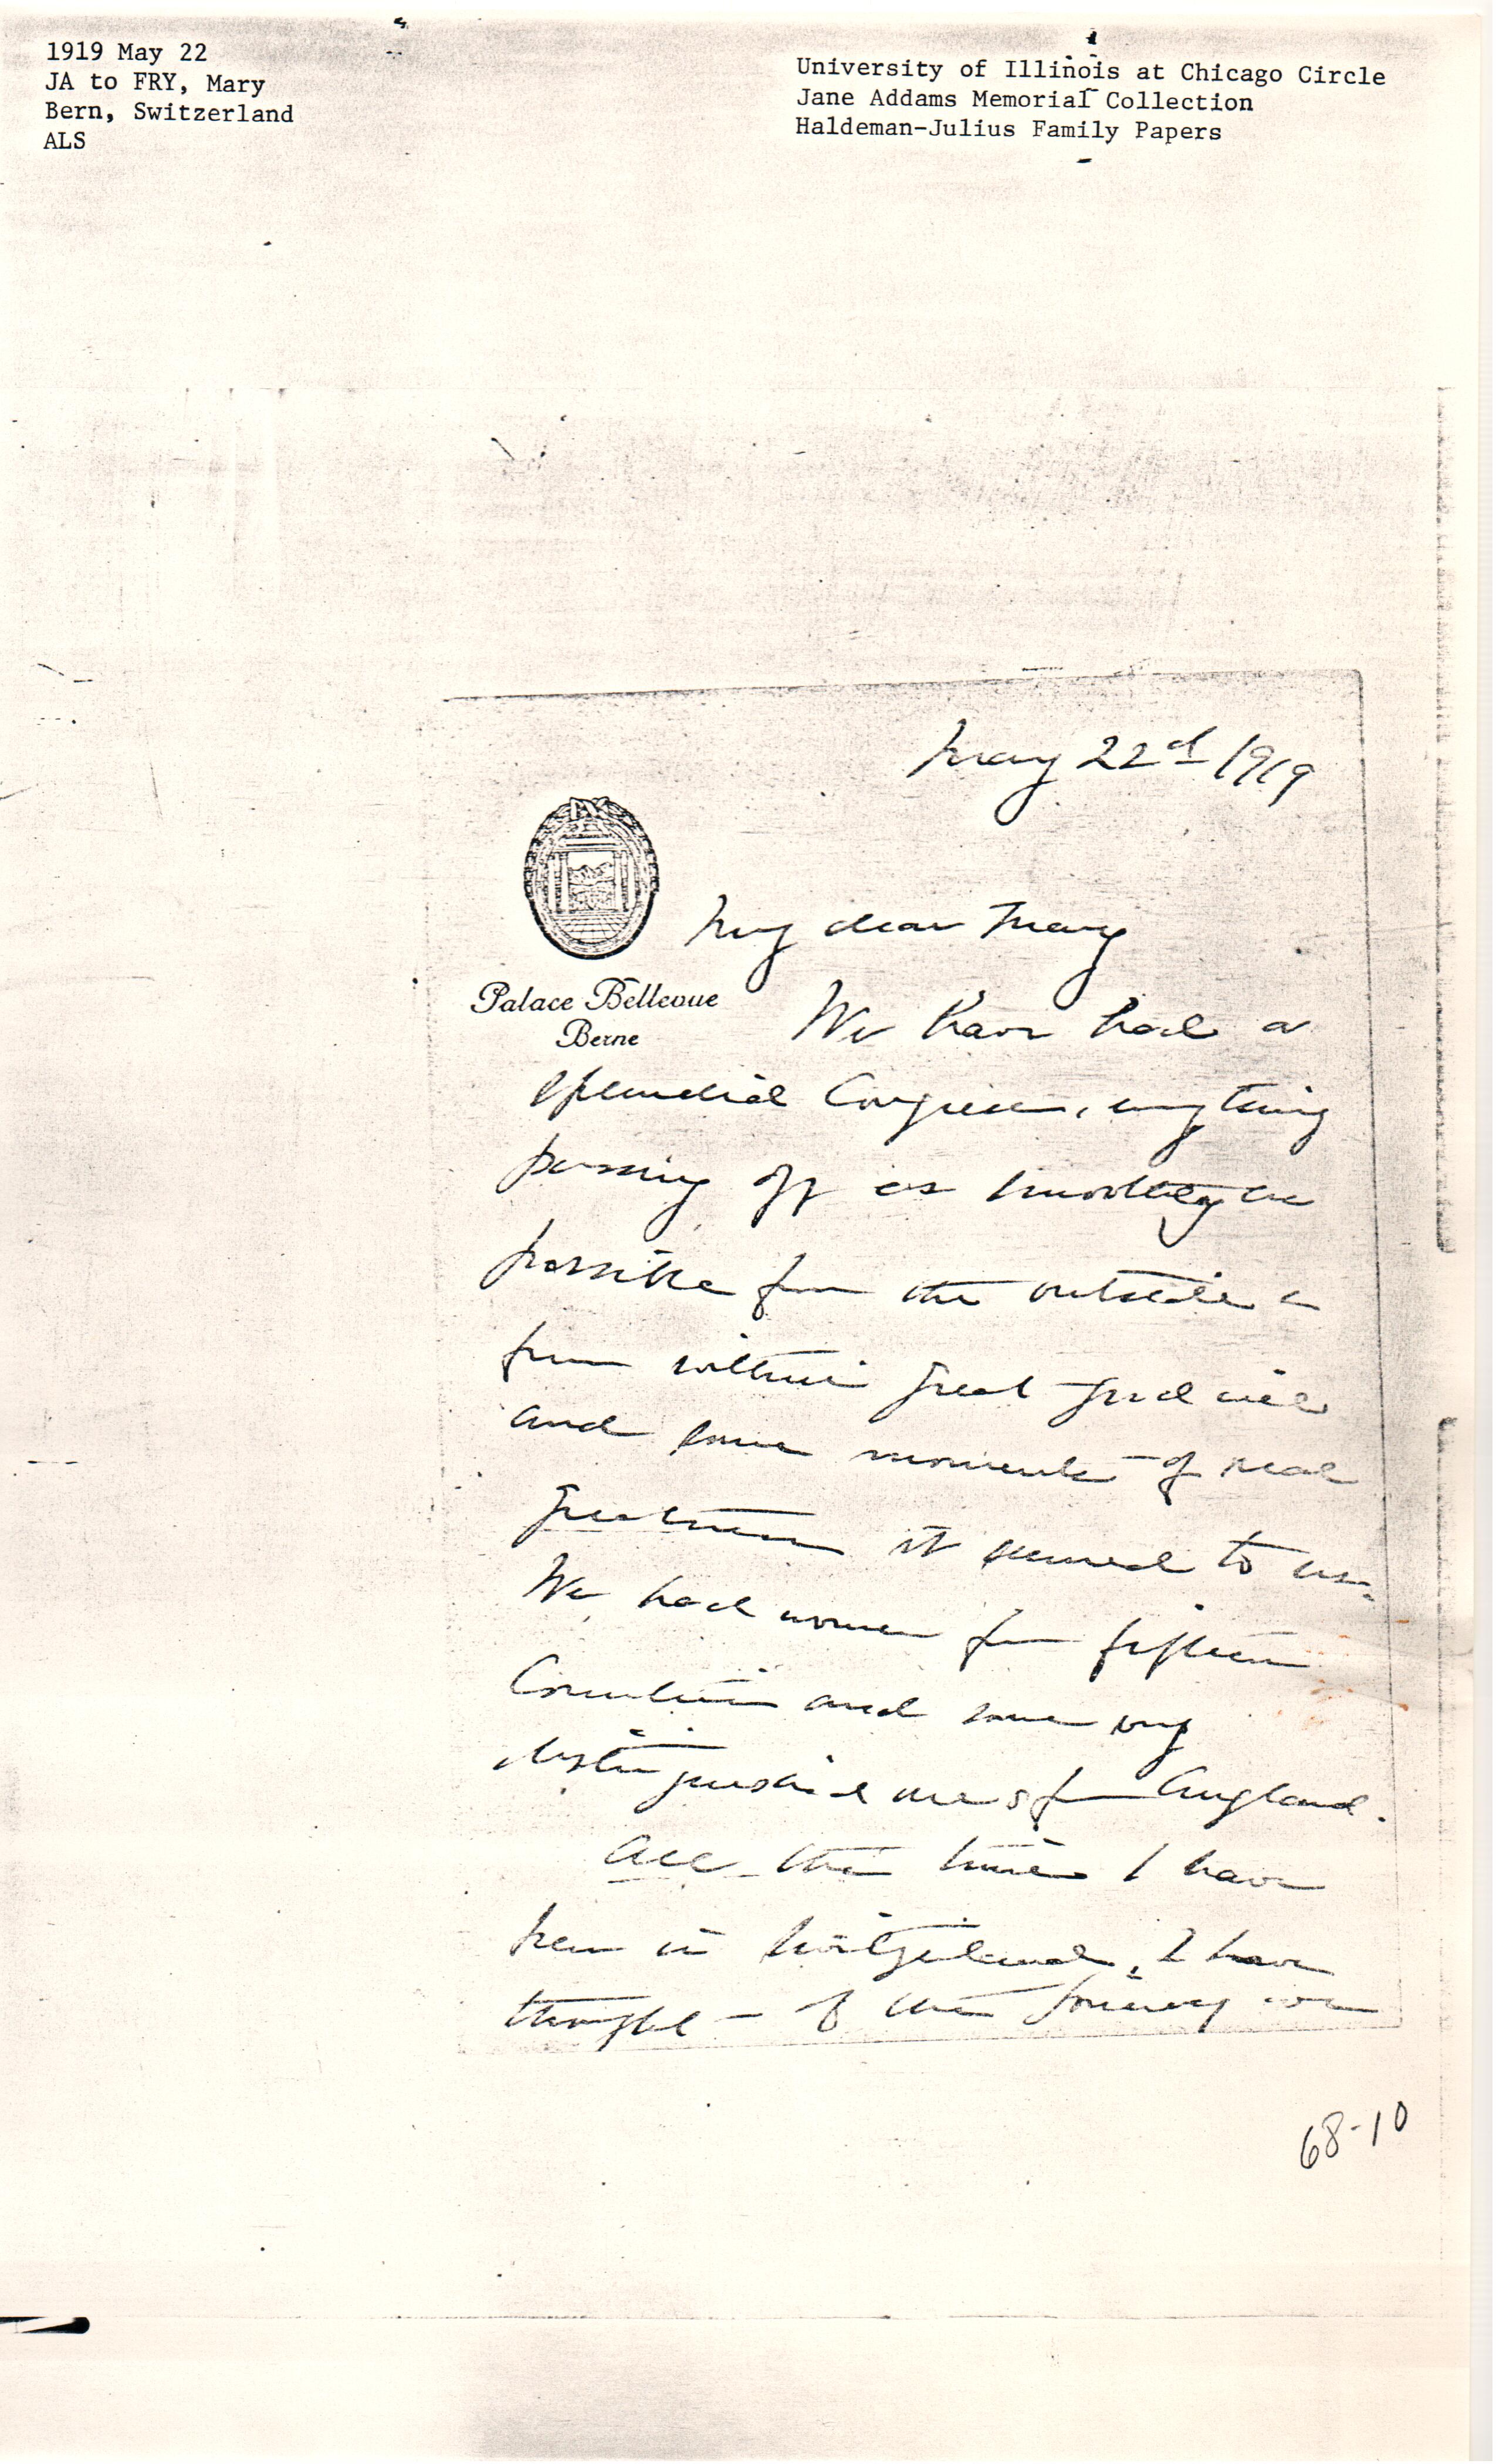 1919 May 22
JA to FRY, Mary
Bern, Switzerland
ALS
University of Illinois at Chicago Circle
Jane Addams Memorial Collection
Haldeman-Julius Family Papers
May 22d 1919
My dear Mary
Palace Bellevue
Berne
We have had a
splendid Congress, everything
passing off as smoothly as
possible from the outside &
from within great good will
and some moments of real
greatness it seemed to us.
We had women from fifteen
Countries and some very
distinguished ones from England.
All the time I have
been in Switzerland, I have
thought of the journey we
68-10